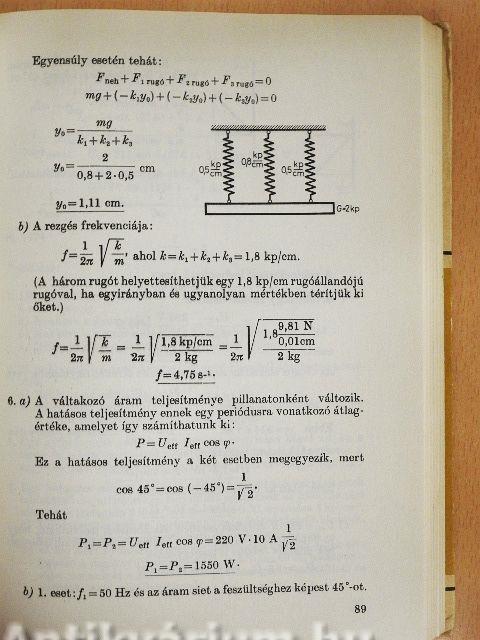 Egyensúly esetén tehát:
F_neh + F_1 rugó + F_2 rugó + F_3 rugó = 0
mg + (−k₁y₀) + (−k₂y₀) + (−k₃y₀) = 0
y₀ = mg / (k₁ + k₂ + k₃)
y₀ = 2 / (0,8 + 2·0,5) cm
y₀ = 1,11 cm.
0,5 kp/cm 0,8 kp/cm 0,5 kp/cm
G=2kp
b) A rezgés frekvenciája:
f = 1/2π √(k/m), ahol k = k₁ + k₂ + k₃ = 1,8 kp/cm.
(A három rugót helyettesíthetjük egy 1,8 kp/cm rugóállandójú
rugóval, ha egyirányban és ugyanolyan mértékben térítjük ki
őket.)
f = 1/2π √(k/m) = 1/2π √(1,8 kp/cm / 2 kg) = 1/2π √(1,8 9,81 N/0,01cm / 2 kg)
f = 4,75 s⁻¹.
6. a) A váltakozó áram teljesítménye pillanatonként változik.
A hatásos teljesítmény ennek egy periódusra vonatkozó átlag-
értéke, amelyet így számíthatunk ki:
P = U_eff I_eff cos φ.
Ez a hatásos teljesítmény a két esetben megegyezik, mert
cos 45° = cos (−45°) = 1/√2.
Tehát
P₁ = P₂ = U_eff I_eff cos φ = 220 V · 10 A 1/√2
P₁ = P₂ = 1550 W.
b) 1. eset: f₁ = 50 Hz és az áram siet a feszültséghez képest 45°-ot.
89
Antikvárium.hu